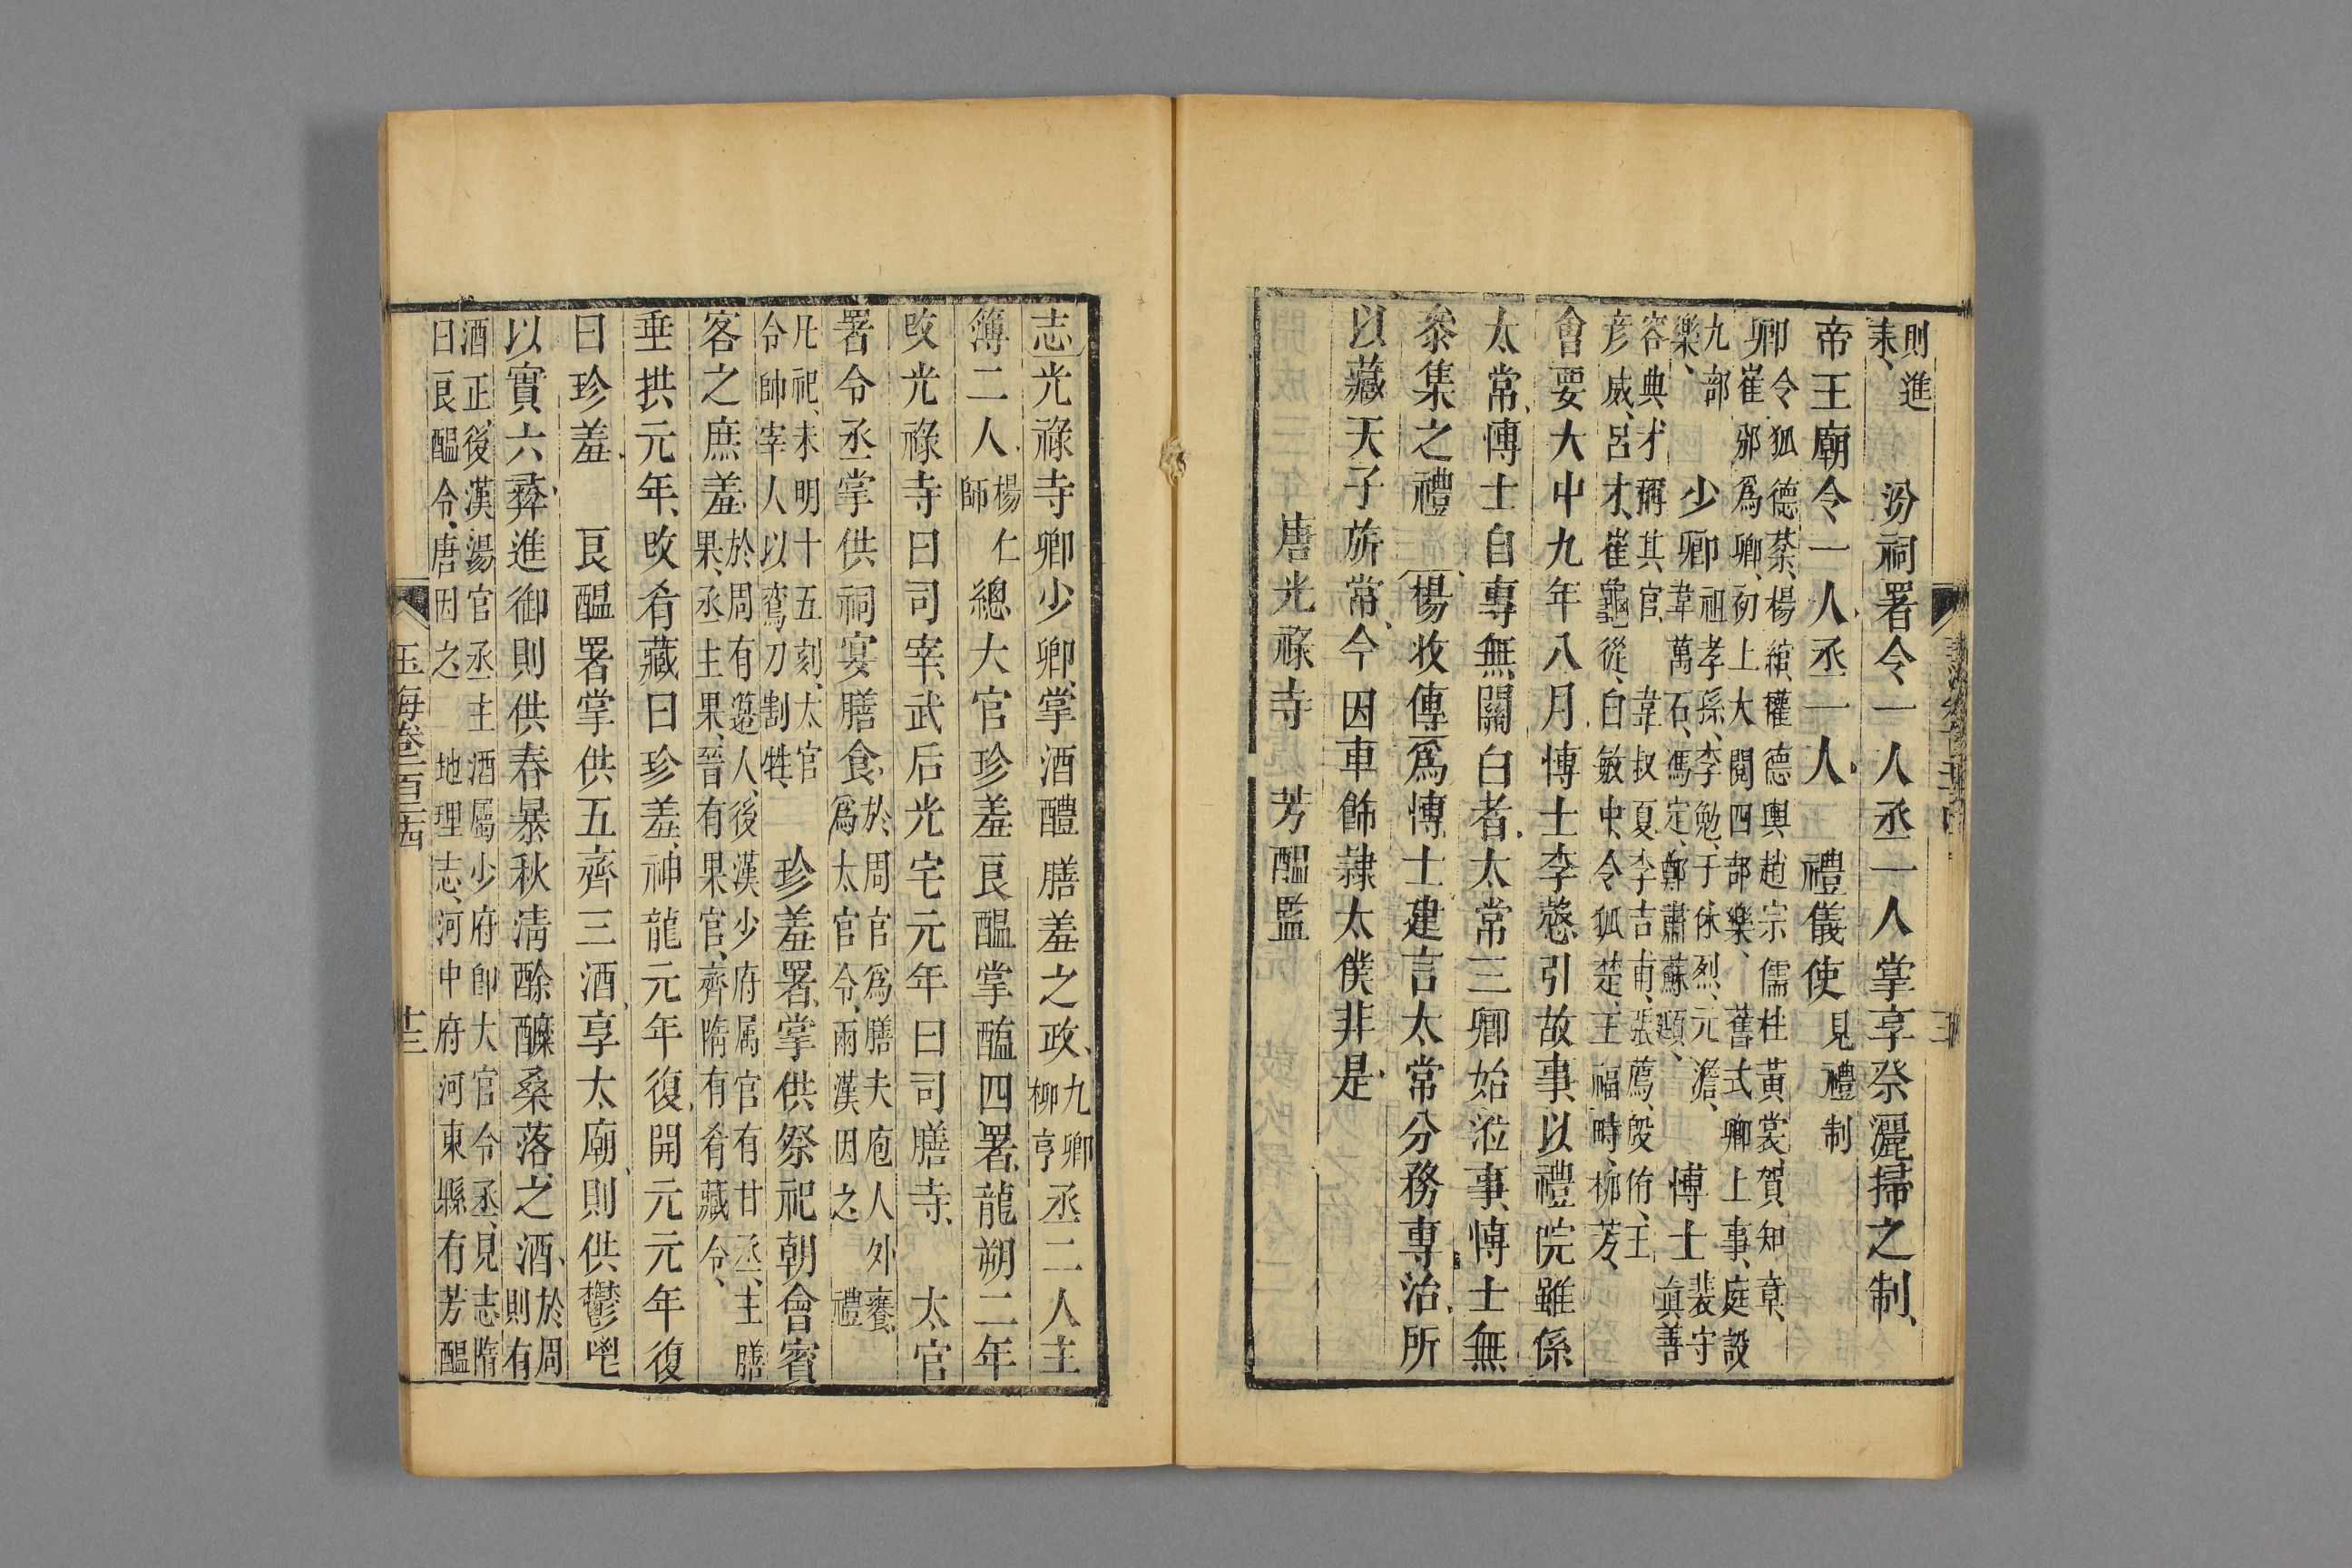 則進耒汾祠署令一人丞一人掌享祭灑掃之制
帝王廟令一人丞一人禮儀使見禮制
卿令狐德棻楊綰權德輿趙宗儒杜黃裳賀知章
崔邠爲卿初上大閱四部樂舊式卿上事庭設
九部樂少卿祖孝孫李勉于休烈元澹韋萬石馮定鄭肅蘇頲博士裴守眞善
容典才稱其官韋叔夏李吉甫張薦殷侑王
彦威呂才崔龜從白敏中令狐楚王福畤柳芳
會要大中九年八月博士李慤引故事以禮院雖係
太常博士自專無關白者太常三卿始涖事博士無
叅集之禮楊收傳爲博士建言太常分務專治所
以藏天子旂常今因車飾隷太僕非是
唐光祿寺芳醖監
志光祿寺卿少卿掌酒醴膳羞之政九卿柳亨丞二人主
簿二人楊仁師總大官珍羞良醖掌醢四署龍朔二年
改光祿寺曰司宰武后光宅元年曰司膳寺太官
署令丞掌供祠宴膳食於周官爲膳夫庖人外饔爲太官令兩漢因之禮
凡祀未明十五刻太官令帥宰人以鸞刀割牲珍羞署掌供祭祀朝會賓
客之庶羞於周有籩人後漢少府属官有甘丞主膳果丞主果晉有果官齊隋有肴藏令
垂拱元年改肴藏曰珍羞神龍元年復開元元年復
曰珍羞良醖署掌供五齊三酒享太廟則供鬱鬯
以實六彝進御則供春暴秋淸酴醿桑落之酒於周則有
酒正後漢湯官丞主酒屬少府卽大官令丞見志隋
曰良醖令唐因之地理志河中府河東縣有芳醖
玉海卷一百二十四 十三